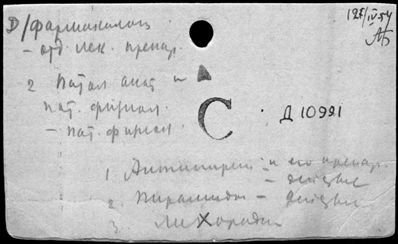 Д/фармакологи
- отд. лек. препар.
12/IV 54
2 Патол. анат и
пат. физиол.
- пат. физиол.
С
Д 10991
1. Антипирин и его препар.
- действие
2. Пирамидон - действие
3. Лихорадка